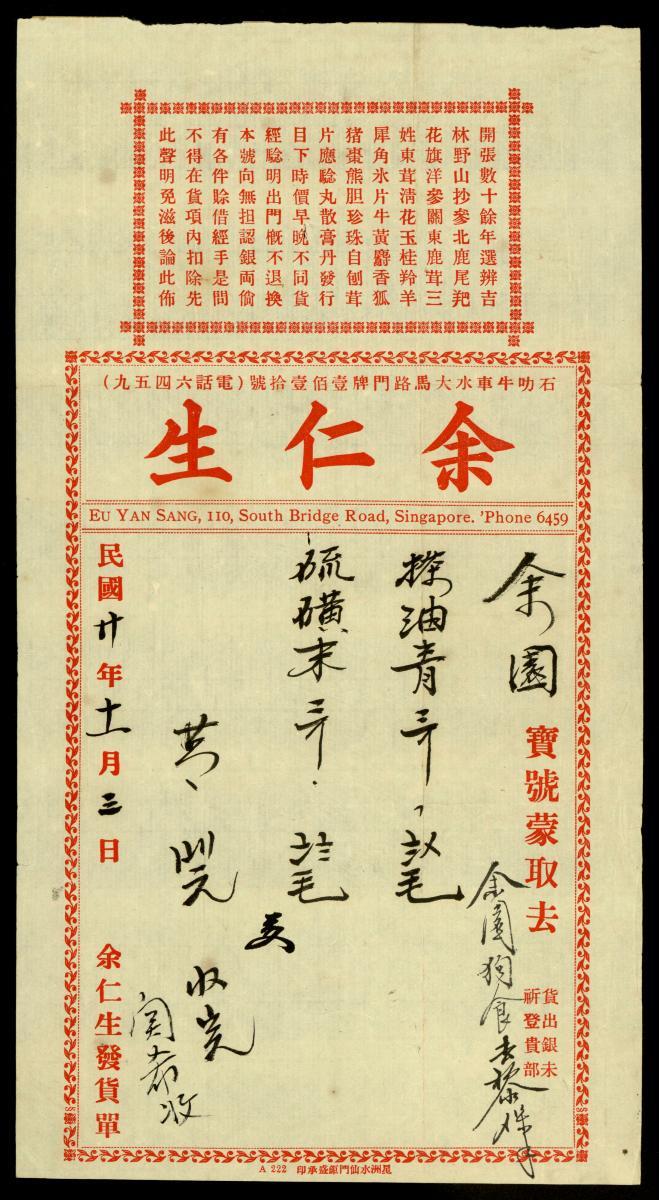 開張數十餘年選辨吉
林野山抄參北鹿尾羓
花旗洋參關東鹿茸三
姓東茸淸花玉桂羚羊
犀角氷片牛黃麝香狐
猪棗熊胆珍珠自刨茸
片應騐丸散膏丹發行
目下時價早晚不同貨
經騐明出門概不退換
本號向無担認銀両倘
有各伴賒借經手是問
不得在貨項內扣除先
此聲明免滋後論此佈
石叻牛車水大馬路門牌壹佰壹拾號(電話六四五九)
余仁生
EU YAN SANG, 110, South Bridge Road, Singapore. 'Phone 6459
余園 寶號蒙取去
貨出銀未
祈登貴部
余園狗食
油青
硫磺末
收
民國廿年十一月三日 余仁生發貨單
星洲水仙門鉅盛承印 A 222